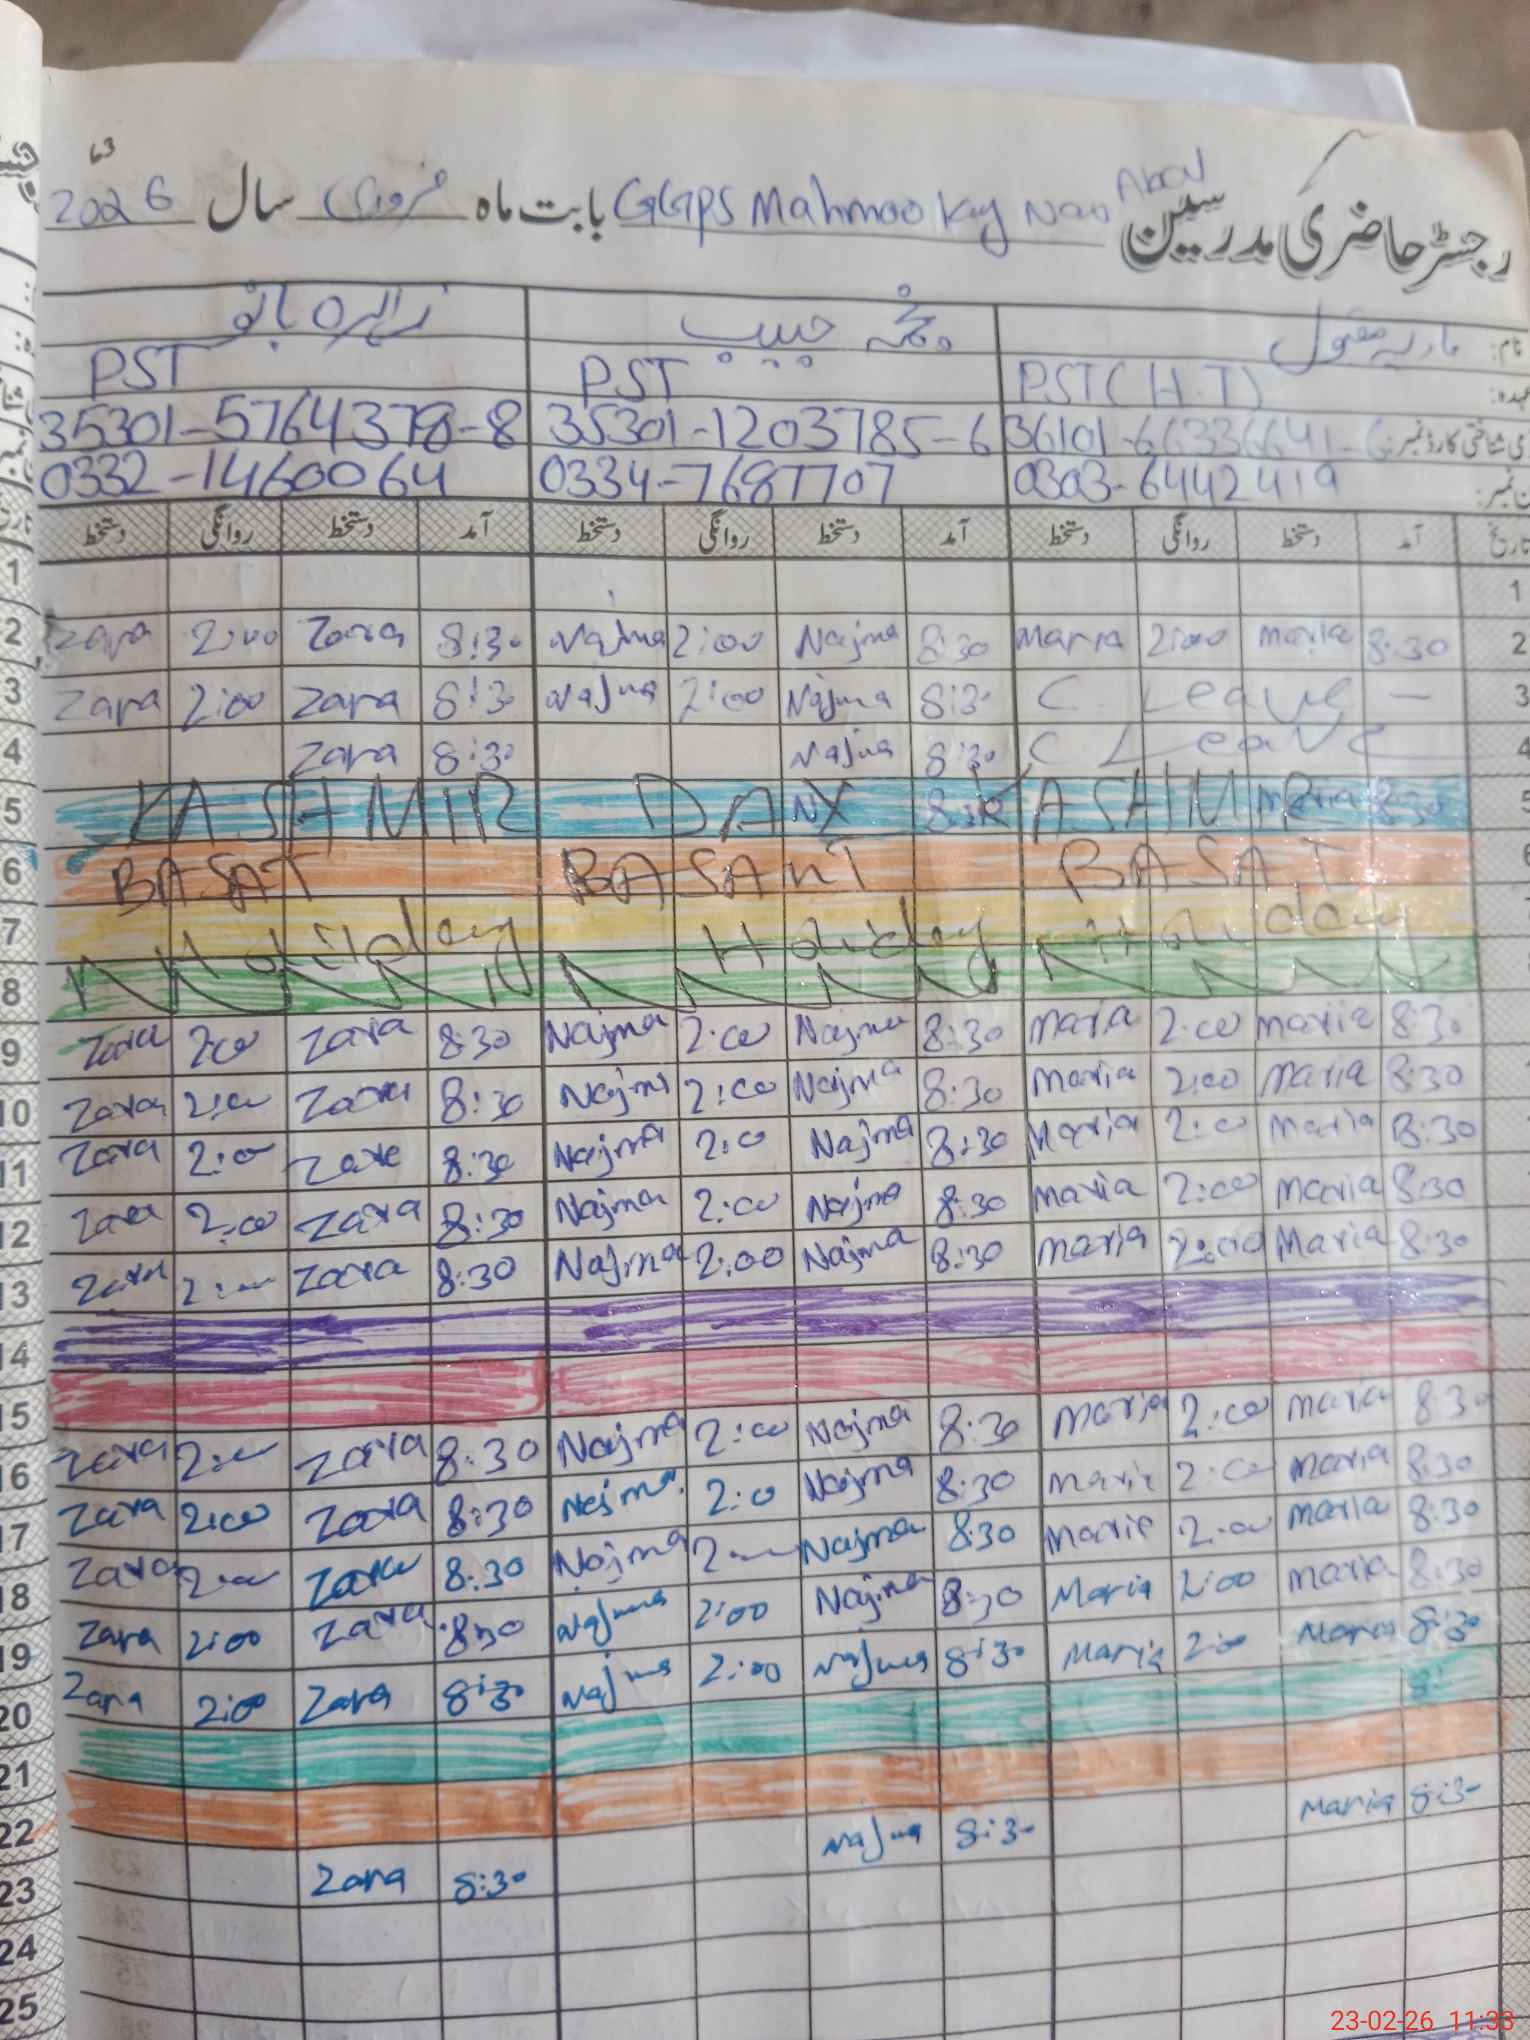 63
رجسٹر حاضری مدرسین GGPS Mahmoo Key Nau Abad بابت ماہ فروری سال 2026
نام: ماریہ مقبول نجمہ حبیب زاہرہ بانو
عہدہ: PST (H.T) PST PST
35301-5764378-8 35301-1203785-6 36101-66336641-6
0332-1460064 0334-7687707 0303-6442419
تاریخ آمد دستخط روانگی دستخط آمد دستخط روانگی دستخط آمد دستخط روانگی دستخط
1 1
2 Zara 2:00 Zara 8:30 Najma 2:00 Najma 8:30 Maria 2:00 Maria 8:30 2
3 Zara 2:00 Zara 8:30 Najma 2:00 Najma 8:30 C Leave – 3
4 Zara 8:30 Najma 8:30 C Leave 4
5 KASHMIR DAY 8:30 KASHMIR Maria 8:30 5
6 BASAT BASANT BASAT 6
7 Holiday Holiday Holiday
8
9 Zara 2:00 Zara 8:30 Najma 2:00 Najma 8:30 Maria 2:00 Maria 8:30
10 Zara 2:00 Zara 8:30 Najma 2:00 Najma 8:30 Maria 2:00 Maria 8:30
11 Zara 2:00 Zara 8:30 Najma 2:0 Najma 8:30 Maria 2:0 Maria 8:30
12 Zara 2:00 Zara 8:30 Najma 2:00 Najma 8:30 Maria 2:00 Maria 8:30
13 Zara 2:00 Zara 8:30 Najma 2:00 Najma 8:30 Maria 2:00 Maria 8:30
14
15
16 Zara 2:00 Zara 8:30 Najma 2:00 Najma 8:30 Maria 2:00 Maria 8:30
17 Zara 2:00 Zara 8:30 Najma 2:0 Najma 8:30 Maria 2:00 Maria 8:30
18 Zara 2:00 Zara 8:30 Najma 2:00 Najma 8:30 Maria 2:00 Maria 8:30
19 Zara 2:00 Zara 8:30 Najma 2:00 Najma 8:30 Maria 2:00 Maria 8:30
20 Zara 2:00 Zara 8:30 Najma 2:00 Najma 8:30 Maria 2:00 Maria 8:30
21
22
23 Zara 8:30 Najma 8:30 Maria 8:30
24
25
23-02-26 11:33